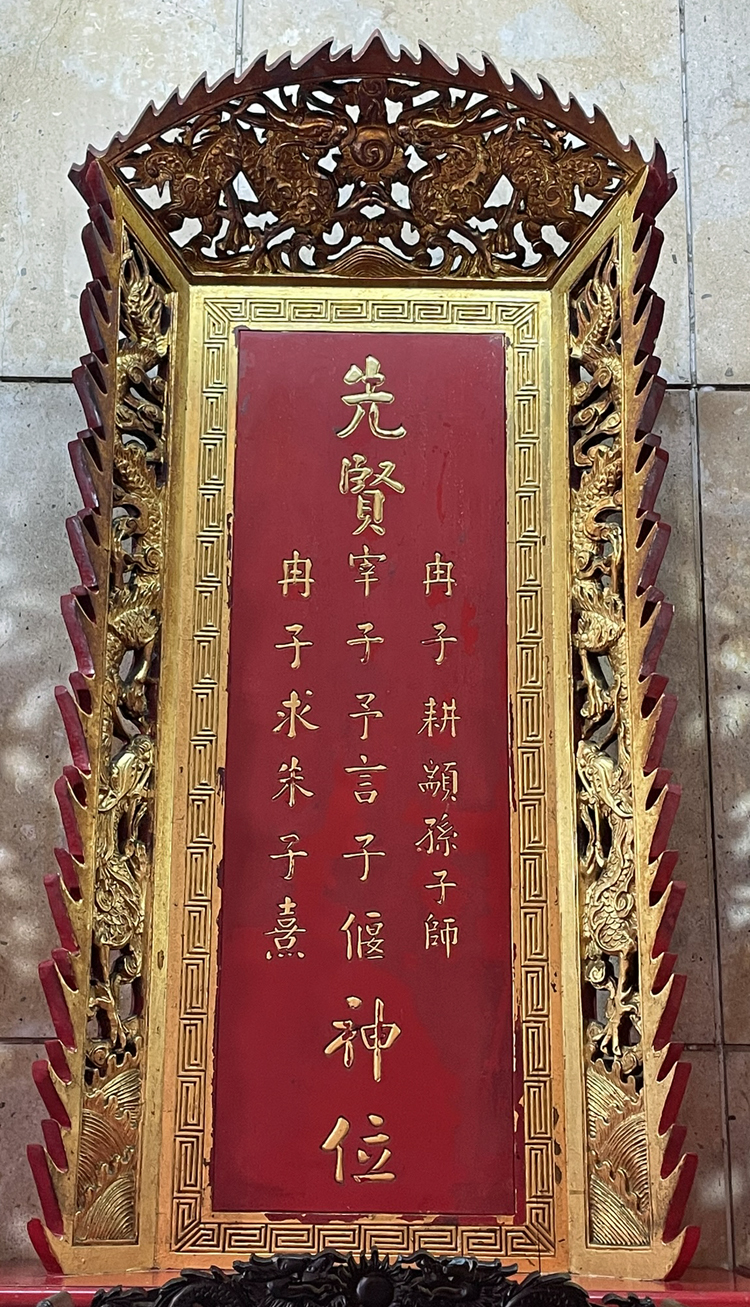 先賢
冉子耕顓孫子師
宰子予言子偃
冉子求朱子熹
神位